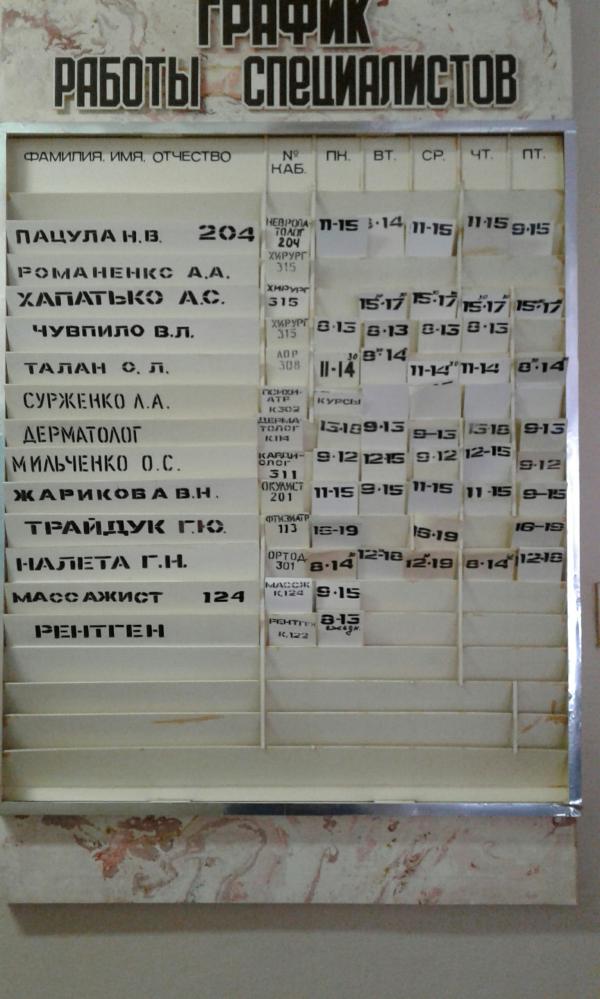 ГРАФИК
РАБОТЫ СПЕЦИАЛИСТОВ
ФАМИЛИЯ, ИМЯ, ОТЧЕСТВО № КАБ. ПН. ВТ. СР. ЧТ. ПТ.
ПАЦУЛА Н.В. 204 НЕВРОПАТОЛОГ 204 11-15 -14 11-15 11-15 9-15
РОМАНЕНКО А.А. ХИРУРГ 315
ХАПАТЬКО А.С. ХИРУРГ 315 15-17 15-17 15-17 15-17
ЧУВПИЛО В.Л. ХИРУРГ 315 8-13 8-13 8-13 8-13
ТАЛАН О.Л. ЛОР 308 11-14 30 8-14 11-14 11-14 8-14
СУРЖЕНКО Л.А. ПСИХИАТР К302 КУРСЫ
ДЕРМАТОЛОГ ДЕРМАТОЛОГ К114 13-18 9-13 9-13 13-18 9-13
МИЛЬЧЕНКО О.С. КАРДИОЛОГ 311 9-12 12-15 9-12 12-15 9-12
ЖАРИКОВА В.Н. ОКУЛИСТ 201 11-15 9-15 11-15 11-15 9-15
ТРАЙДУК Г.Ю. ФТИЗИАТР 113 16-19 16-19 16-19
НАЛЕТА Г.Н. ОРТОД. 301 8-14 12-18 12-19 8-14 12-18
МАССАЖИСТ 124 МАССЖ К.124 9-15
РЕНТГЕН РЕНТГЕН К.122 8-13 ежедн.